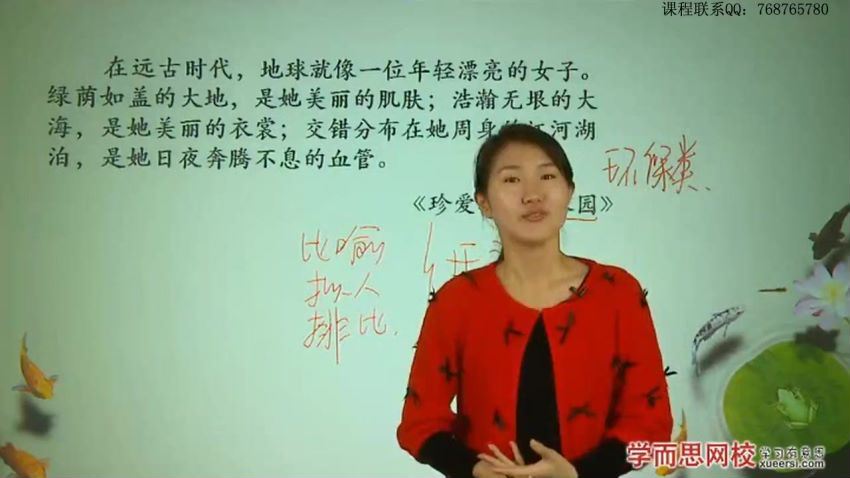 课程联系QQ：768765780
在远古时代，地球就像一位年轻漂亮的女子。
绿荫如盖的大地，是她美丽的肌肤；浩瀚无垠的大
海，是她美丽的衣裳；交错分布在她周身的江河湖
泊，是她日夜奔腾不息的血管。
环保类
《珍爱 园》
比喻
拟人
排比
学而思网校
学习有意思
xueersi.com